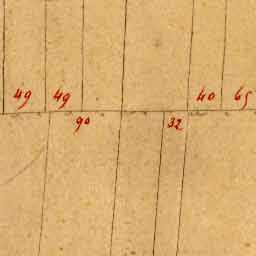 49 49 40 65
90 32